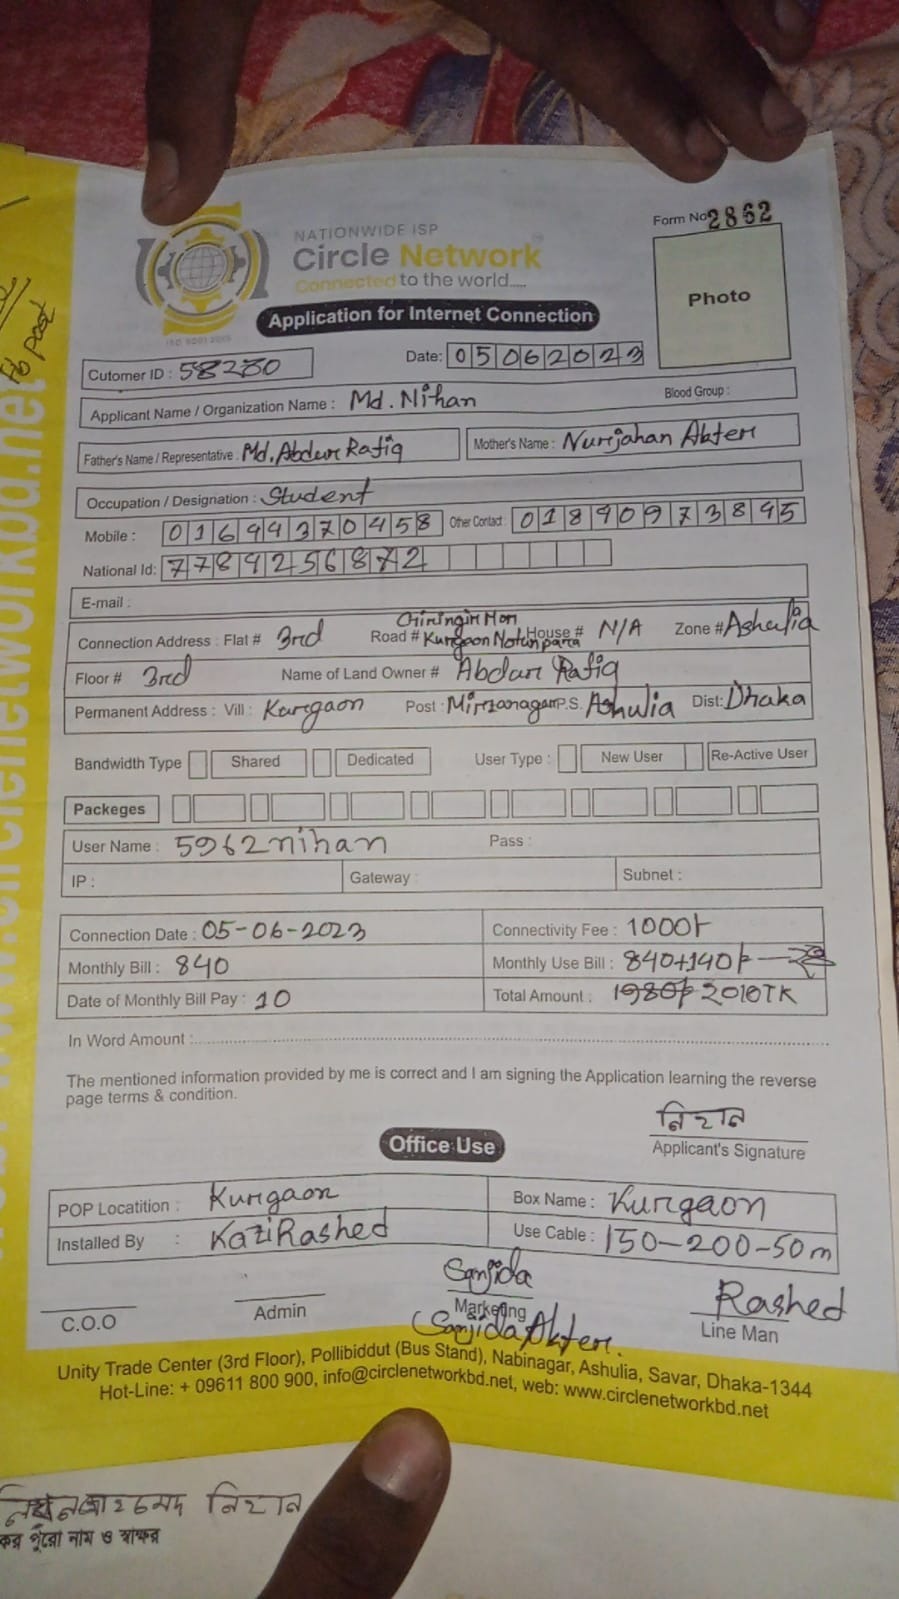 Form No 2862
NATIONWIDE ISP
Circle Network
Connected to the world.....
Photo
Application for Internet Connection
ISO 9001:2008
Date: 05062023
Cutomer ID : 58280
Applicant Name / Organization Name : Md. Nihan Blood Group :
Father's Name / Representative : Md. Abdur Rafiq Mother's Name : Nurjahan Akter
Occupation / Designation : Student
Mobile : 01644370458 Other Contact : 01840973845
National Id: 7784256872
E-mail :
Connection Address : Flat # 3rd Road # Kurgaon Notunpara House # N/A Zone # Ashulia
Floor # 3rd Name of Land Owner # Abdur Rafiq
Permanent Address : Vill : Kurgaon Post : Mirzanagar P.S. Ashulia Dist: Dhaka
Bandwidth Type Shared Dedicated User Type : New User Re-Active User
Packeges
User Name : 5962nihan Pass :
IP : Gateway : Subnet :
Connection Date : 05-06-2023 Connectivity Fee : 1000/-
Monthly Bill : 840 Monthly Use Bill : 840+140/-
Date of Monthly Bill Pay : 10 Total Amount : 1980/- 2010TK
In Word Amount :
The mentioned information provided by me is correct and I am signing the Application learning the reverse
page terms & condition.
নিহান
Applicant's Signature
Office Use
POP Locatition : Kurgaon Box Name : Kurgaon
Installed By : Kazi Rashed Use Cable : 150-200-50m
Sanjida Rashed
C.O.O Admin Marketing Line Man
(Sanjida Akter.
Unity Trade Center (3rd Floor), Pollibiddut (Bus Stand), Nabinagar, Ashulia, Savar, Dhaka-1344
Hot-Line: + 09611 800 900, info@circlenetworkbd.net, web: www.circlenetworkbd.net
www.circlenetworkbd.net
নিহান
পুরো নাম ও স্বাক্ষর